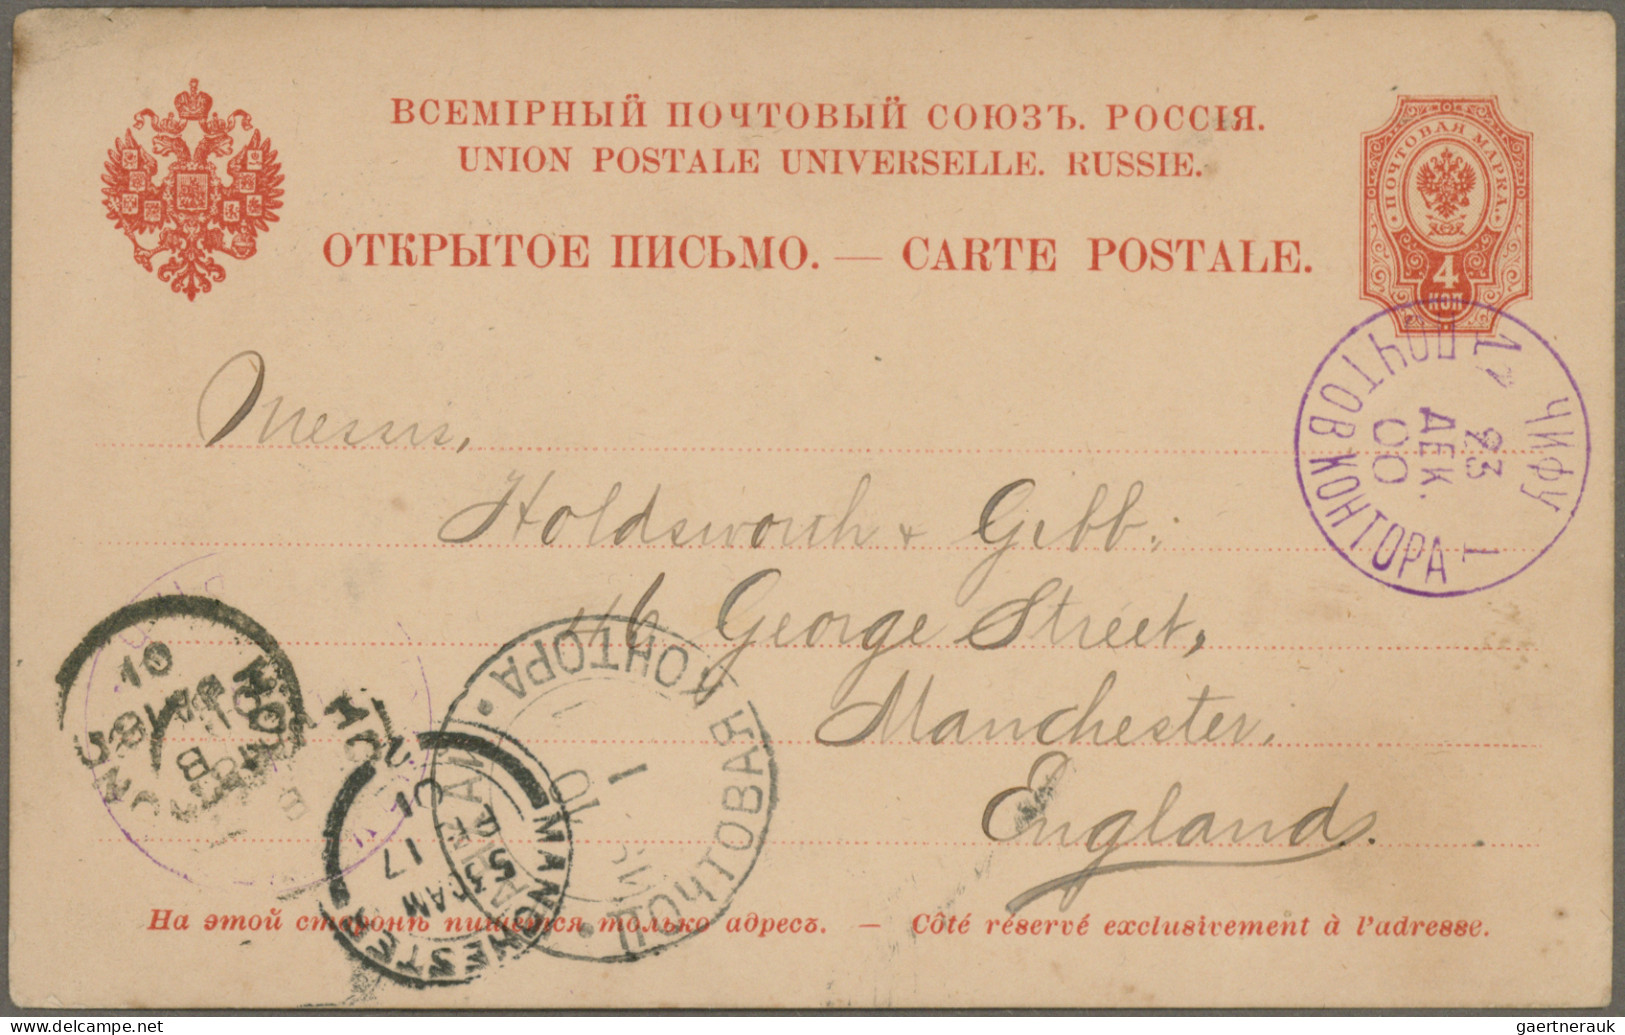 ВСЕМІРНЫЙ ПОЧТОВЫЙ СОЮЗЪ. РОССІЯ.
UNION POSTALE UNIVERSELLE. RUSSIE.
ОТКРЫТОЕ ПИСЬМО. — CARTE POSTALE.
ПОЧТОВАЯ МАРКА
4
КОП
ЧИФУ
23
ДЕК.
00
ПОЧТОВ КОНТОРА
1
Messrs,
Holdsworth & Gibb,
46 George Street,
Manchester,
England.
HONG
HONG
ПОЧТОВАЯ КОНТОРА
1
MANCHESTER
5 30 AM
17
01
На этой сторонѣ пишется только адресъ. — Côté réservé exclusivement à l'adresse.
gaertnerauk
www.delcampe.net